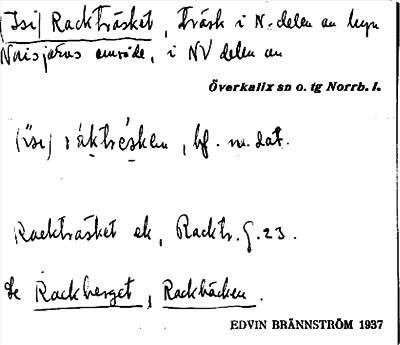 (Isi) Rackträsket, träsk i N. delen av byn
Naisjärvs område, i NV delen av
Överkalix sn o. tg Norrb. l.
(ɩ̈si) ráktrèsken, bf. m. dat.
Rackträsket ek, Racktr. G. 23.
Se Rackberget, Rackbäcken.
EDVIN BRÄNNSTRÖM 1937